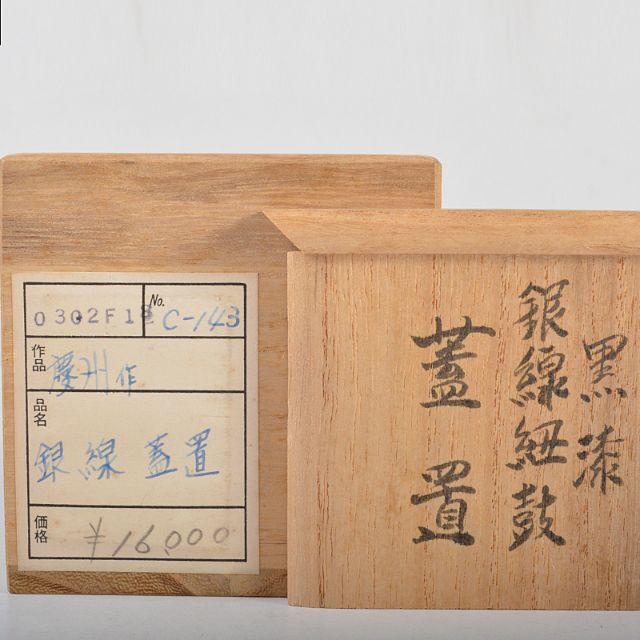 0302F18
No.
C-143
作品
慶州作
品名
銀線蓋置
価格
¥16,000
黒漆
銀線紐鼓
蓋置